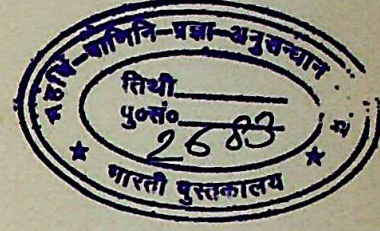 महर्षि-पाणिनि-प्रज्ञा-अनुसन्धान
तिथी
पु०सं० 2683
★ भारती पुस्तकालय ★